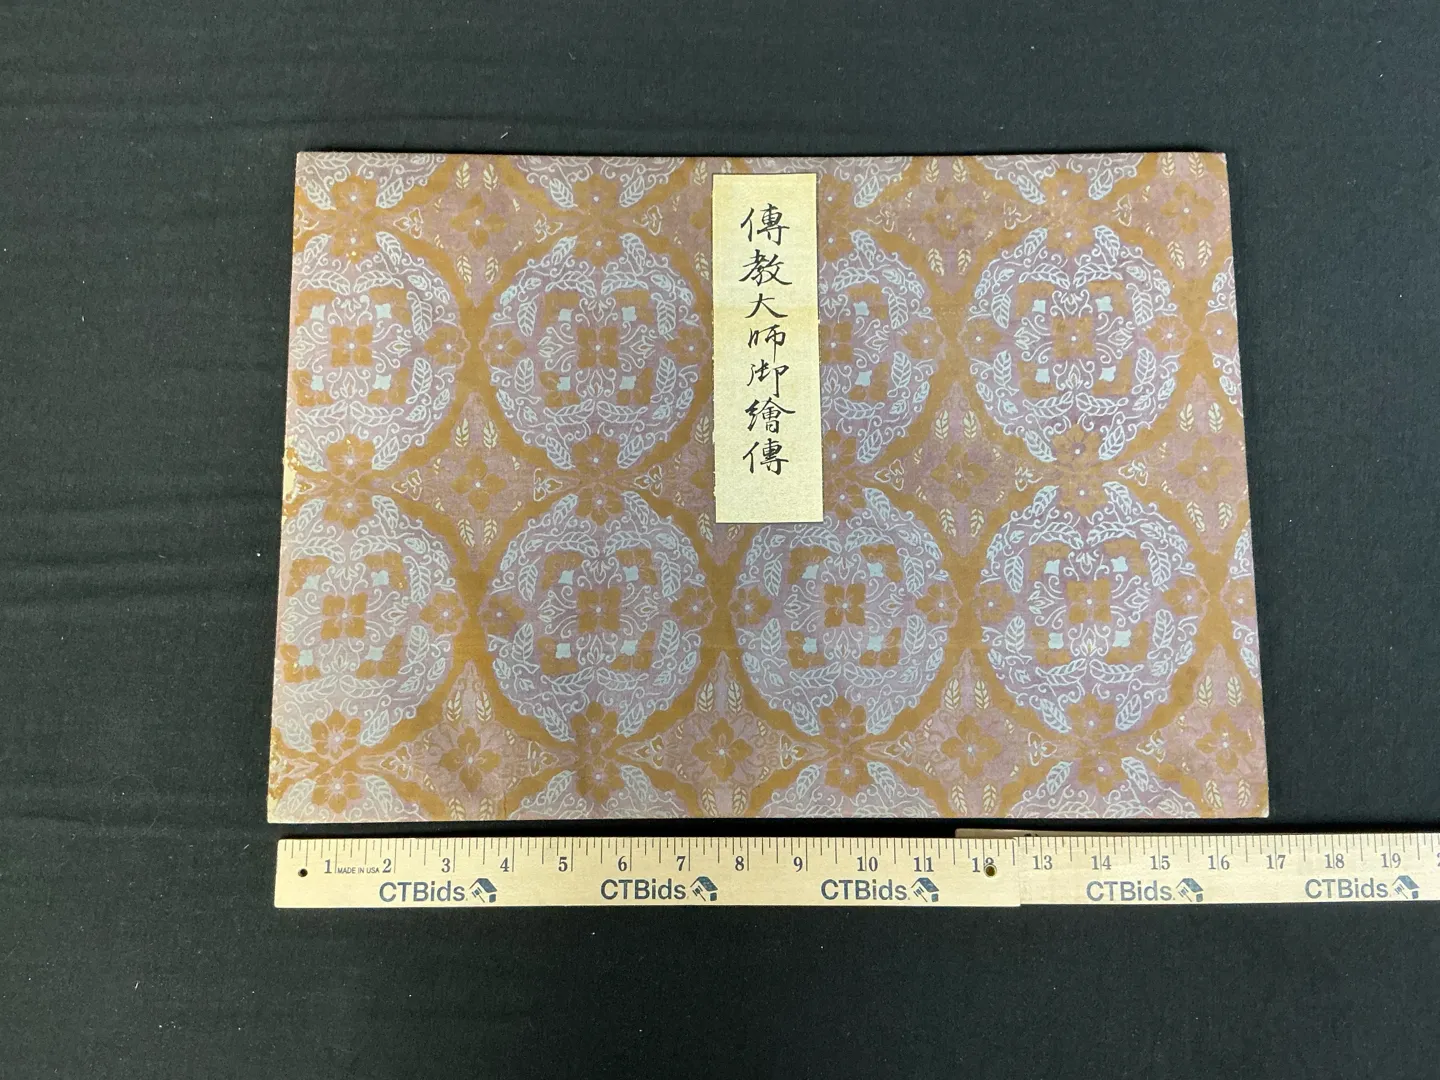 傳教大師御繪傳
1 MADE IN USA 2 3 4 5 6 7 8 9 10 11 12 13 14 15 16 17 18 19
CTBids. CTBids. CTBids. CTBids. CTBids.